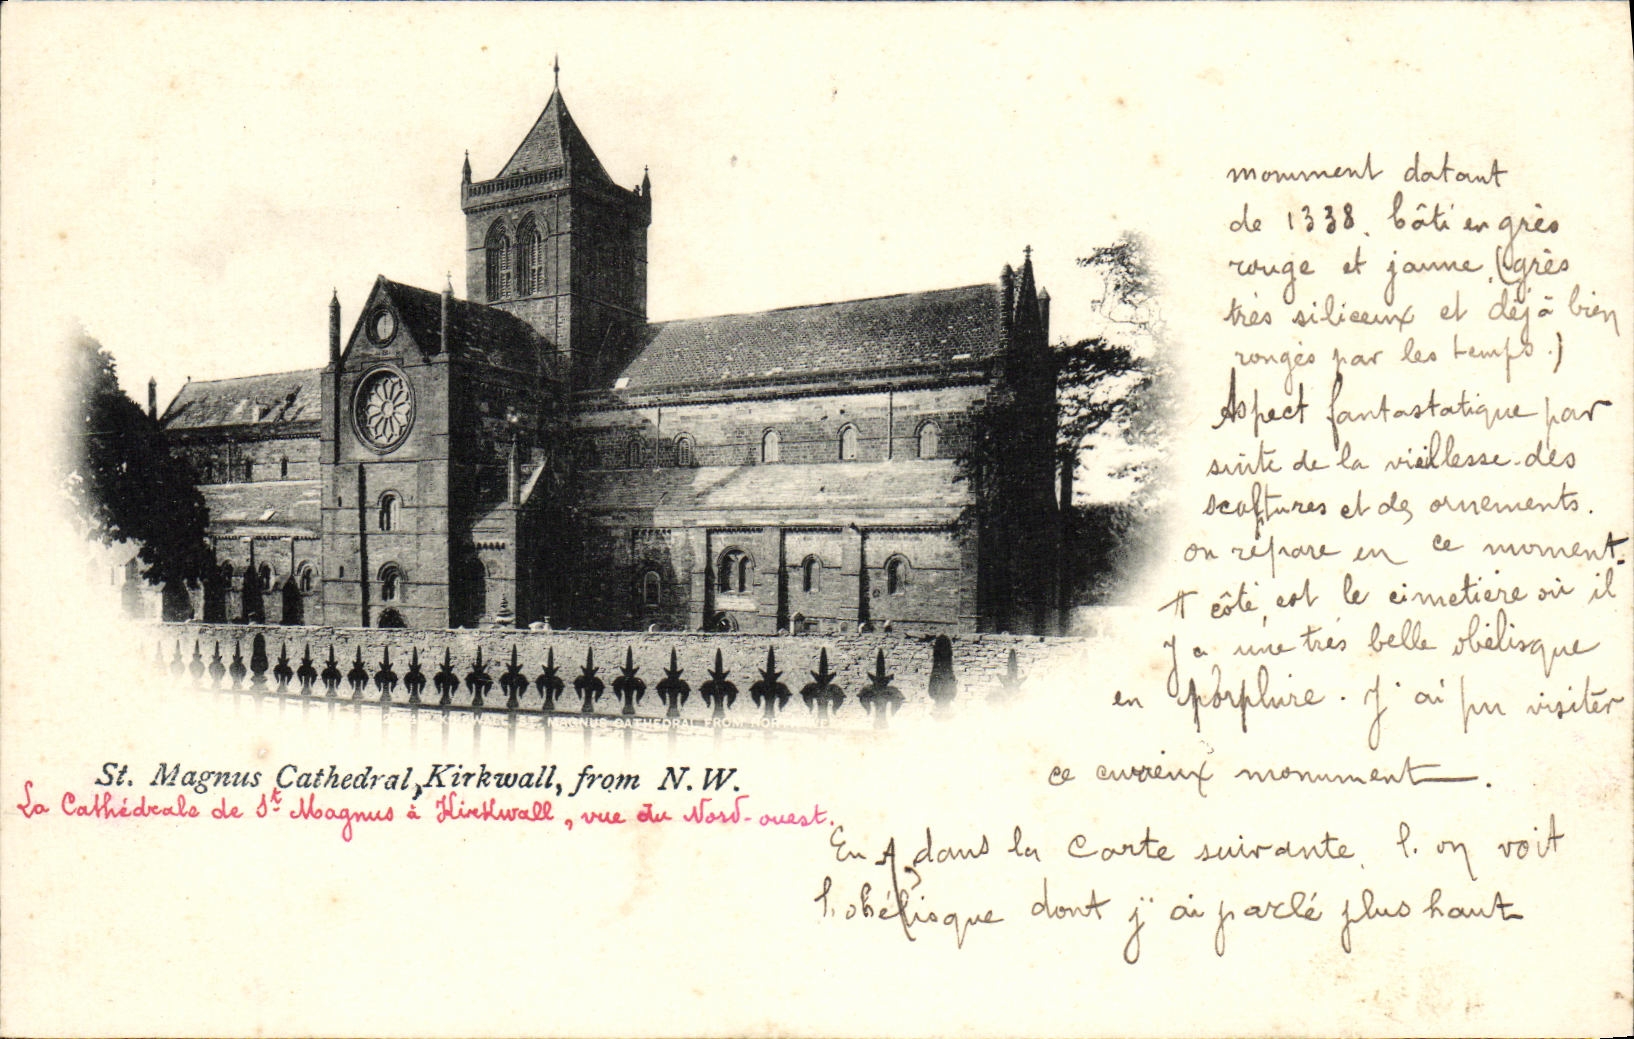 monument datant
de 1338. bâti en grès
rouge et jaune (grès
très siliceux et déjà bien
rongés par les temps.)
Aspect fantastatique par
suite de la vieillesse des
sculptures et des ornements.
on répare en ce moment.
A côté, est le cimetière où il
y a une très belle obélisque
en porphire. J'ai pu visiter
ce curieux monument.
KIRKWALL, ST. MAGNUS CATHEDRAL FROM NORTH
St. Magnus Cathedral, Kirkwall, from N.W.
La Cathédrale de St Magnus à Kirkwall, vue du Nord-ouest.
En A, dans la carte suivante, l'on voit
l'obélisque dont j'ai parlé plus haut